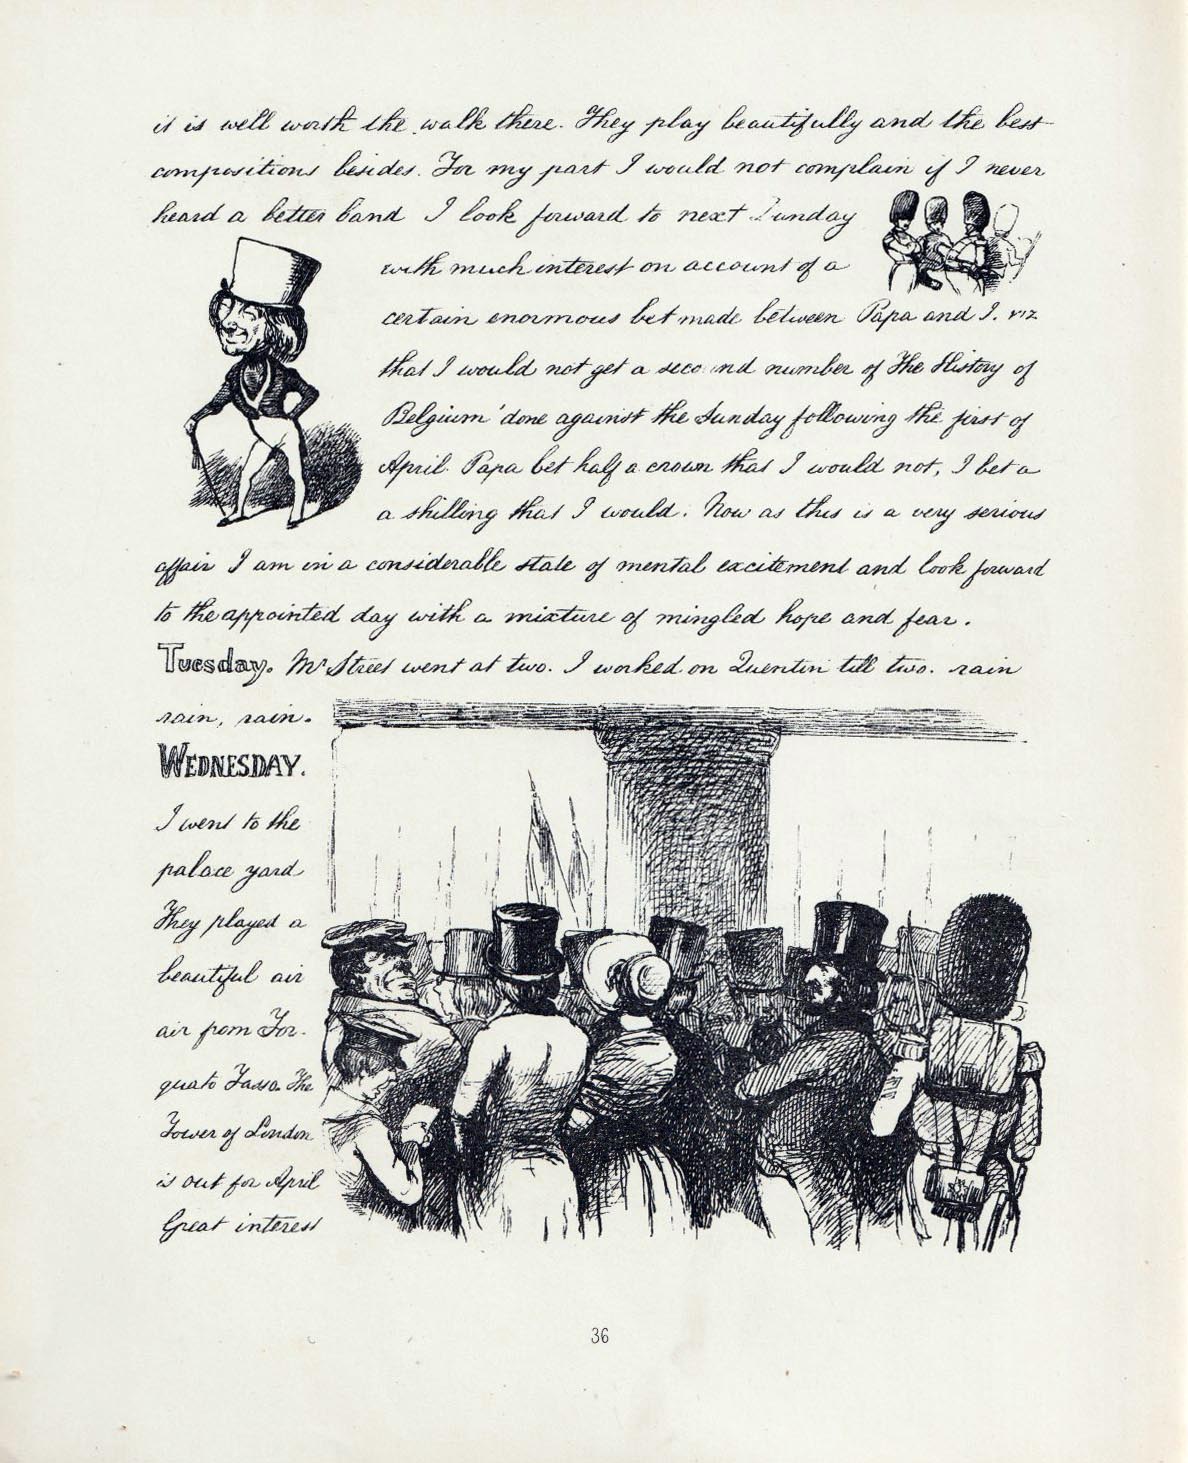 it is well worth the walk there. They play beautifully and the best
compositions besides. For my part I would not complain if I never
heard a better band I look forward to next Sunday
with much interest on account of a
certain enormous bet made between Papa and I. viz
that I would not get a second number of The History of
Belgium' done against the Sunday following the first of
April. Papa bet half a crown that I would not, I bet a
a shilling that I would. Now as this is a very serious
affair I am in a considerable state of mental excitement and look forward
to the appointed day with a mixture of mingled hope and fear.
Tuesday. Mr Street went at two. I worked on Quentin till two. rain
rain, rain.
WEDNESDAY.
I went to the
palace yard
They played a
beautiful air
air from Tor-
quato Tasso. The
Tower of London
is out for April
Great interest
36